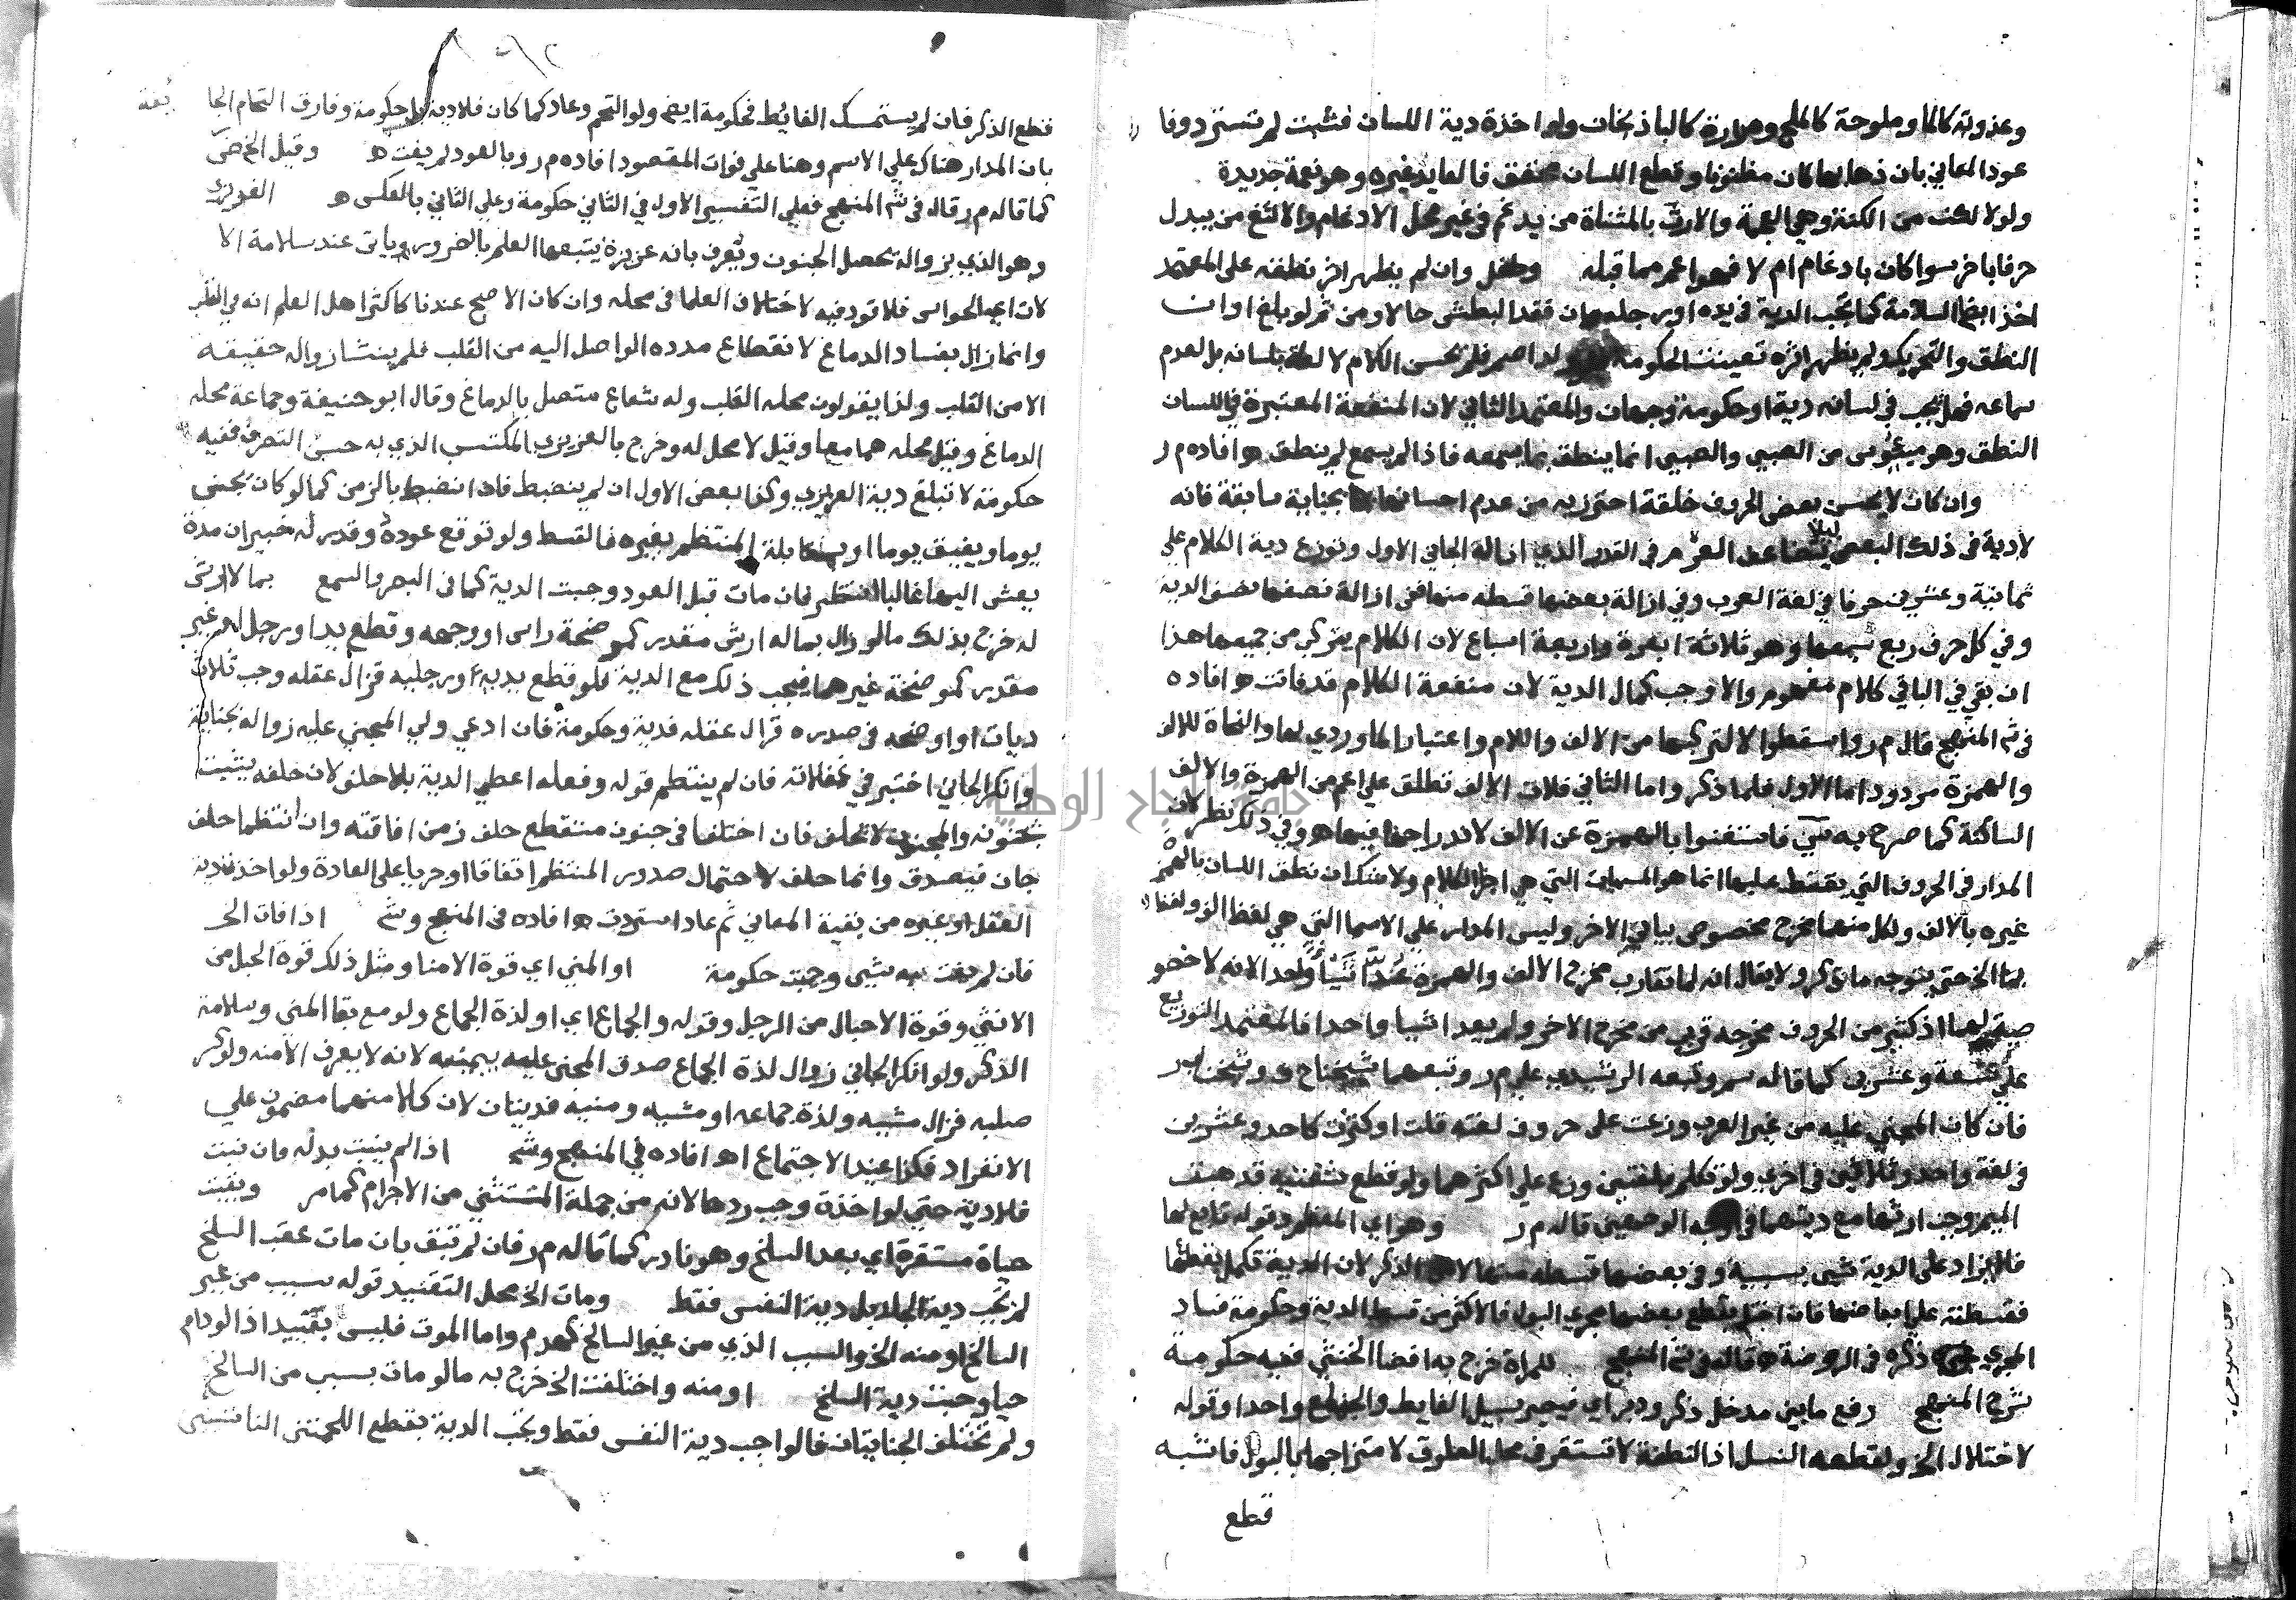 وعذوبته كالما وملوحة كالملح ومرارة كالباذنجان ولو اخذة دية اللسان فنبت لم تسترد وفا
عود المعاني بان ذهابها كان مظنونا وقطع اللسان محقق فالعايد غيره وهو نعمة جديدة
ولو لالكنت من الكنة وهي العجمة والارت بالمثناة من يدغم في غير محل الادغام والالثغ من يبدل
حرفا باخر سوا كان بادغام ام لا فهو اعم مما قبله وطفل وان لم يظهر اثر نطقه على المعتمد
اخذا بظ السلامة كما تجب الدية في يده او رجله وان فقد البطش حالا ومن ثم لو بلغ اوان
النطق والتحريك ولم يظهر اثره تعينت الحكومة ولد اصم فلم يحسن الكلام لا لعلة بلسانه بل لعدم
سماعه فهل تجب في لسانه دية او حكومة وجهان والمعتمد الثاني لان المنفعة المعتبرة في اللسان
النطق وهو ميئوس من الصبي والصبي انما ينطق بما يسمعه فاذا لم يسمع لم ينطق ه افاده م ر
وان كان لا يحسن بعض الحروف خلقة احترز به من عدم احسانها بجناية سابقة فانه
لا دية في ذلك البعض ليلا يتضاعف الغرم في القدر الذي ازاله الجاني الاول وتوزع دية الكلام علي
ثمانية وعشرين حرفا في لغة العرب وفي ازالة بعضها قسطه منها ففي ازالة نصفها نصف الدية
وفي كل حرف ربع سبعها وهو ثلاثة ابعرة واربعة اسباع لان الكلام يتركب من جميعها هذا
ان بقي في الباقي كلام مفهوم والا وجب كمال الدية لان منفعة الكلام قد فاتت ه افاده
في شم المنهج قال م ر واسقطوا لا لتركبها من الالف واللام واعتبار الماوردي لها والنحاة للالف
والهمزة مردود اما الاول فلما ذكر واما الثاني فلان الالف تطلق علي اعم من الهمزة والالف
الساكنة كما صرح به س فاستغنوا بالهمزة عن الالف لاندراجها فيها ه وفي ذلك نظر لان
المدار في الحروف التي يقسط عليها انما هو المسميات التي هي اجزا الكلام ولا منكران نطق اللسان بالهمزة
غيره بالالف ولكل منهما مخرج مخصوص يباين الاخر وليس المدار علي الاسما التي هي لفظ الف ولفظ
بها الخ حتى يتوجه ما ذكر ولا يقال انه لما تقارب مخرج الالف والهمزة عُدا شيأ واحد الانه لا خصو
صية لهما اذ كثير من الحروف مخرجه قريب من مخرج الاخر ولم يعد اشيا واحدا فالمعتمد التوزيع
علي تسعة وعشرين كما قاله سم وتبعه الرشيدي علي م ر وتبعهما
فان كان المجني عليه من غير العرب وزعت على حروف لغته قلت او كثرت كاحد وعشرين
في لغة واحد وثلاثين في اخري ولو تكلم بلغتين وزع علي اكثرهما ولو قطع شفتيه فذهبت
الميم وجب ارشها مع ديتهما في اوجه الوجهين قاله م ر وهو اي المعظم وقوله تابع لها
فلا يزاد على الدية شي بسببه وفي بعضها قسطه منها لا الذكر لان الدية تكمل بقطعها
فقسطت علي ابعاضها فان اختل بقطع بعضها مجري البول فالاكثر من قسط الدية وحكومة فساد
المجري ذكره في الروضة ه قاله في شم المنهج للمراة خرج به افضا الخنثي ففيه حكومة
شرح المنهج رفع ما بين مدخل ذكر ودبر اي فيصير سبيل الغايط والجماع واحدا وقوله
لاختلال الخ ولقطعه النسل اذ النطفة لا تستقر في محل العلوق لامتزاجها بالبول فاشبه
قطع
قطع الذكر فان لم يستمسك الغايط فحكومة ايض ولو التحم وعاد كما كان فلا دية بل حكومة وفارق التحام الجا يفة
بان المدار هناك علي الاسم وهنا علي فوات المقصود افاده م ر وبالعود لم يفت ه وقيل الخ حَكَى
كما قاله م ر قال في شم المنهج فعلي التفسير الاول في الثاني حكومة وعلي الثاني بالعكس ه الغريزي
وهو الذي بزواله يحصل الجنون ويعرف بانه غريزة يتبعها العلم بالضروريات عند سلامة الا
لات اي الحواس فلا قود فيه لاختلاف العلما في محله وان كان الاصح عندنا كاكثر اهل العلم انه في القلب
وانما زال بفساد الدماغ لانقطاع مدده الواصل اليه من القلب فلم ينشا زواله حقيقة
الا من القلب ولذا يقولون محله القلب وله شعاع متصل بالدماغ وقال ابو حنيفة وجماعة محله
الدماغ وقيل محله هما معا وقيل لا محل له وخرج بالغريزي المكتسب الذي به حسن التصرف ففيه
حكومة لا تبلغ دية الغريزي وكذا بعض الاول ان لم ينضبط فان انضبط بالزمن كما لو كان يجن
يوما ويفيق يوما او بمقابلة المنتظم بغيره فالقسط ولو توقع عوده وقدر له خبيران مدة
يعيش اليها غالبا انتظر فان مات قبل العود وجبت الدية كما في البصر والسمع بما لا ارش
له خرج بذلك ما لو زال بما له ارش مقدر كموضحة راس او وجهه وقطع يد او رجل او غير
مقدر كموضحة غيرهما فيجب ذلك مع الدية فلو قطع يديه او رجليه فزال عقله وجب ثلاث
ديات او اوضحه في صدره فزال عقله فدية وحكومة فان ادعي ولي المجني عليه زواله بجناية
وانكر الجاني اختبر في غفلاته فان لم ينتظم قوله وفعله اعطي الدية بلا حلف لان حلفه يثبت
جنونه والمجنون لا يحلف فان اختلفا في جنون متقطع حلف زمن افاقته وان انتظما حلف
جان فيصدق وانما حلف لاحتمال صدور المنتظم اتفاقا او جريا على العادة ولو اخذت دية
العقل او غيره من بقية المعاني ثم عاد استردت ه افاده في المنهج وشم اذا فات الخ
فان لم يفت به شي وجبت حكومة او المني اي قوة الامنا ومثل ذلك قوة الحبل من
الانثي وقوة الاحبال من الرجل وقوله والجماع اي او لذة الجماع ولو مع بقا المني وسلامة
الذكر ولو انكر الجاني زوال لذة الجماع صدق المجني عليه بيمينه لانه لا يعرف الا منه ولو كسر
صلبه فزال مشيه ولذة جماعه او مشيه ومنيه فديتان لان كلا منهما مضمون علي
الانفراد فكذا عند الاجتماع اه افاده في المنهج وشم اذا لم ينبت بدله فان نبت
فلا دية حتي لو اخذة وجب ردها لانه من جملة المستثني من الاجرام كما مر وبقيت
حياة مستقرة اي بعد السلخ وهو نادر كما قاله م ر فان لم تبق بان مات عقب السلخ
لم تجب دية الجلد بل دية النفس فقط ومات الخ محل التقييد قوله بسبب من غير
السالخ او منه الخ والسبب الذي من غير السالخ كهدم واما الموت فليس بتقييد اذ لو دام
حيا وجبت دية السلخ او منه واختلفت الخ خرج به ما لو مات بسبب من السالخ
ولم تختلف الجنايتان فالواجب دية النفس فقط وتجب الدية بقطع اللحمتين الناتئتين